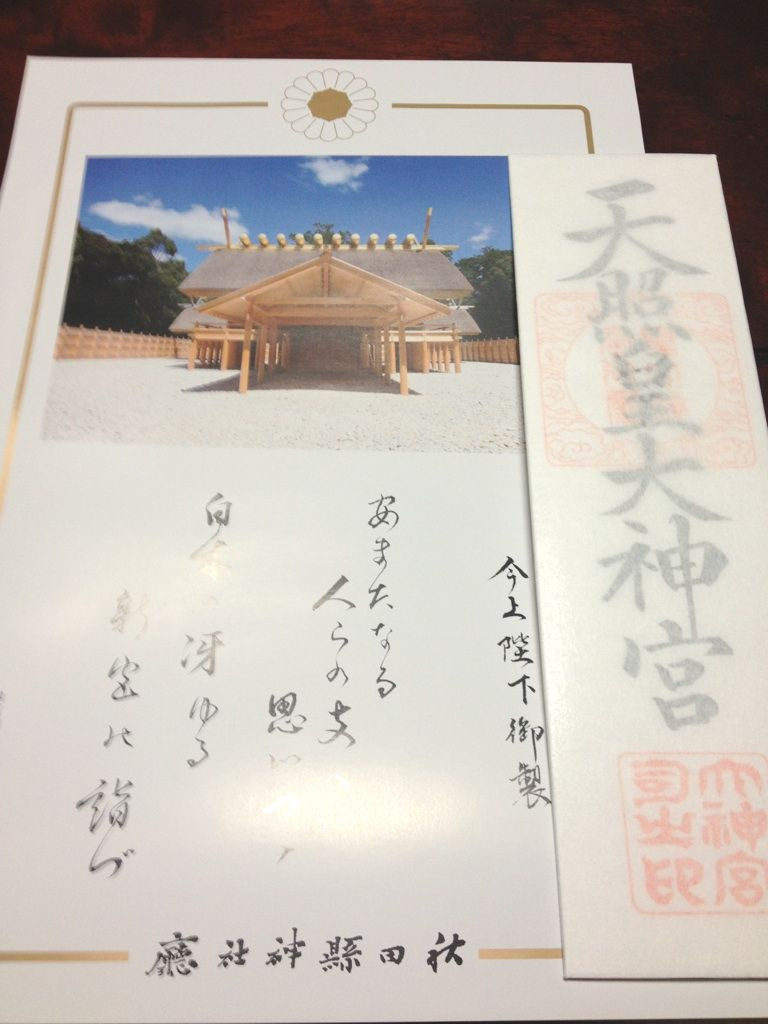 天照皇大神宮
大神宮
司之印
今上陛下御製
安またなる
人らの支
思
白
冴ゆる
新宮に詣づ
秋田縣神社廳